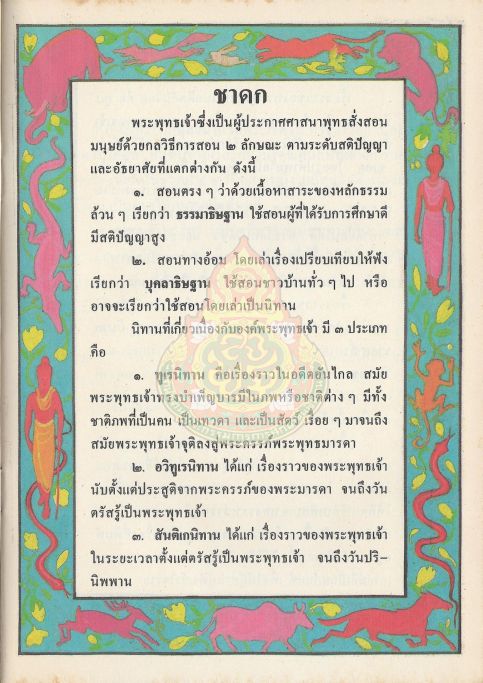 ชาดก
พระพุทธเจ้าซึ่งเป็นผู้ประกาศศาสนาพุทธสั่งสอน
มนุษย์ด้วยกลวิธีการสอน ๒ ลักษณะ ตามระดับสติปัญญา
และอัธยาศัยที่แตกต่างกัน ดังนี้
๑. สอนตรง ๆ ว่าด้วยเนื้อหาสาระของหลักธรรม
ล้วน ๆ เรียกว่า ธรรมาธิษฐาน ใช้สอนผู้ที่ได้รับการศึกษาดี
มีสติปัญญาสูง
๒. สอนทางอ้อม โดยเล่าเรื่องเปรียบเทียบให้ฟัง
เรียกว่า บุคลาธิษฐาน ใช้สอนชาวบ้านทั่ว ๆ ไป หรือ
อาจจะเรียกว่าใช้สอนโดยเล่าเป็นนิทาน
นิทานที่เกี่ยวเนื่องกับองค์พระพุทธเจ้า มี ๓ ประเภท
คือ
๑. ทูเรนิทาน คือเรื่องราวในอดีตอันไกล สมัย
พระพุทธเจ้าทรงบำเพ็ญบารมีในภพหรือชาติต่าง ๆ มีทั้ง
ชาติภพที่เป็นคน เป็นเทวดา และเป็นสัตว์ เรื่อย ๆ มาจนถึง
สมัยพระพุทธเจ้าจุติลงสู่พระครรภ์พระพุทธมารดา
๒. อวิทูเรนิทาน ได้แก่ เรื่องราวของพระพุทธเจ้า
นับตั้งแต่ประสูติจากพระครรภ์ของพระมารดา จนถึงวัน
ตรัสรู้เป็นพระพุทธเจ้า
๓. สันติเกนิทาน ได้แก่ เรื่องราวของพระพุทธเจ้า
ในระยะเวลาตั้งแต่ตรัสรู้เป็นพระพุทธเจ้า จนถึงวันปริ-
นิพพาน